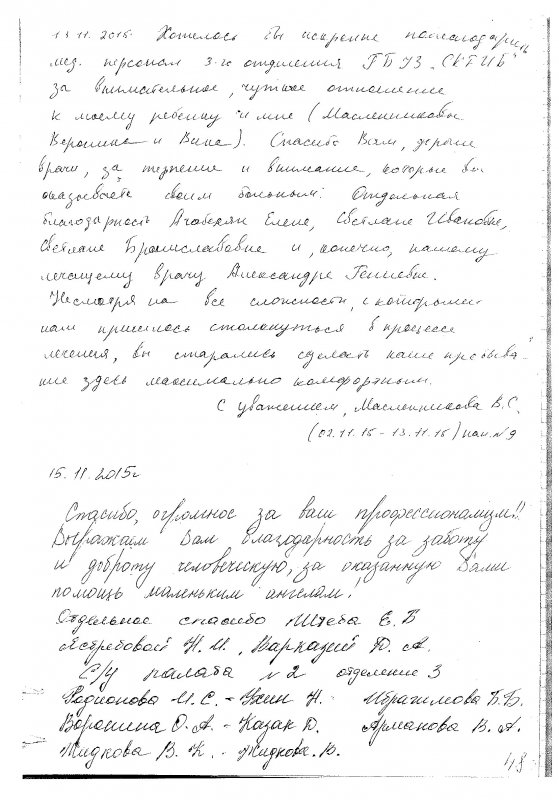 13.11.2015. Хотелось бы искренне поблагодарить
мед. персонал 3-го отделения ГБУЗ „СКГИБ"
за внимательное, чуткое отношение
к моему ребенку и мне (Масленниковы
Вероника и Ваня). Спасибо Вам, дорогие
врачи, за терпение и внимание, которые вы
оказываете своим больным. Отдельная
благодарность Агабекян Елене, Светлане Ивановне,
Светлане Брониславовне и, конечно, нашему
лечащему врачу Александре Гениевне.
Несмотря на все сложности, с которыми
нам пришлось столкнуться в процессе
лечения, вы старались сделать наше пребыва-
ние здесь максимально комфортным.
С уважением, Масленникова В.С.
(02.11.15 - 13.11.15) пал. №9
15.11.2015г
Спасибо, огромное за ваш профессионализм!!
Выражаем Вам благодарность за заботу
и доброту человеческую, за оказанную Вами
помощь маленьким ангелам!
Отдельное спасибо Штеба Е.Б
Ястребовой Н.И., Варказий Ю.А.
С/У палата №2 отделение 3
Родионова И.С. - Ухин Н. Ибрагимова Б.Б.
Воронина О.А. - Казак Ю. Арманова В.А.
Жидкова В.К. - Жидкова В.